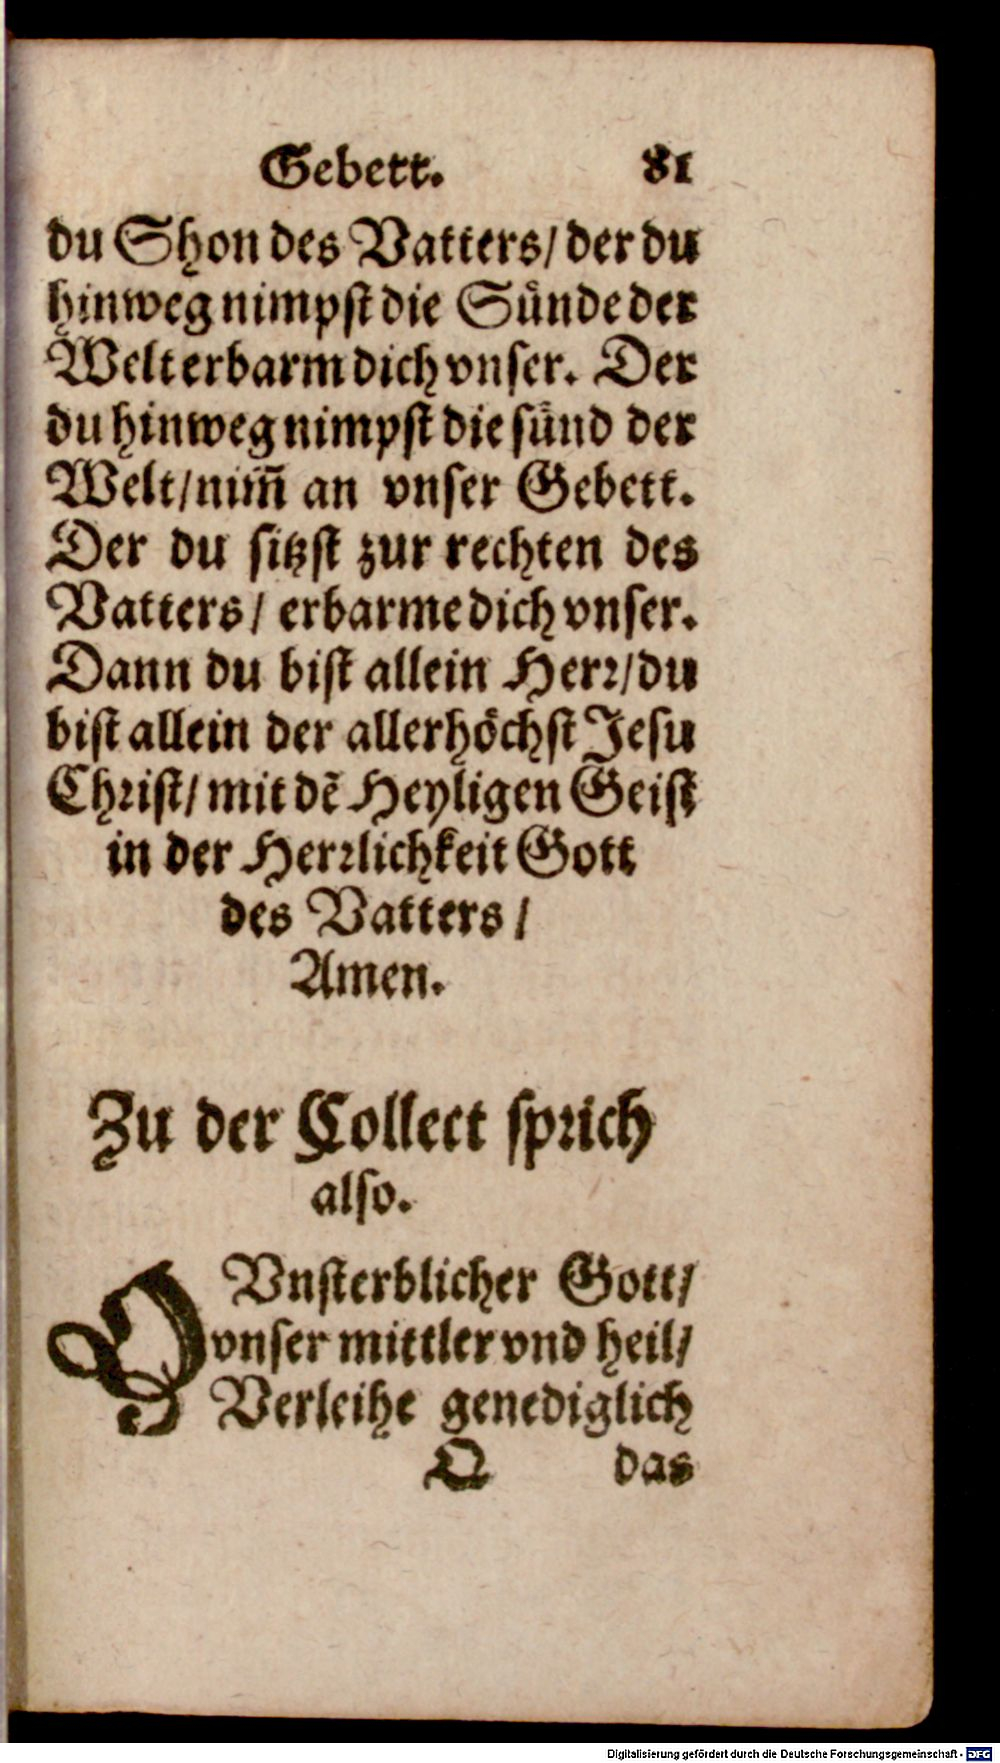 Gebett. 81
du Shon des Vatters/ der du
hinweg nimpst die Sünde der
Welt erbarm dich vnser. Der
du hinweg nimpst die sünd der
Welt/ nim̄ an vnser Gebett.
Der du sitzst zur rechten des
Vatters/ erbarme dich vnser.
Dann du bist allein Herr/ du
bist allein der allerhöchst Jesu
Christ/ mit dē Heyligen Geist
in der Herrlichkeit Gott
des Vatters/
Amen.
Zu der Collect sprich
also.
O Vnsterblicher Gott/
vnser mittler vnd heil/
Verleihe genediglich
Q das
Digitalisierung gefördert durch die Deutsche Forschungsgemeinschaft - DFG